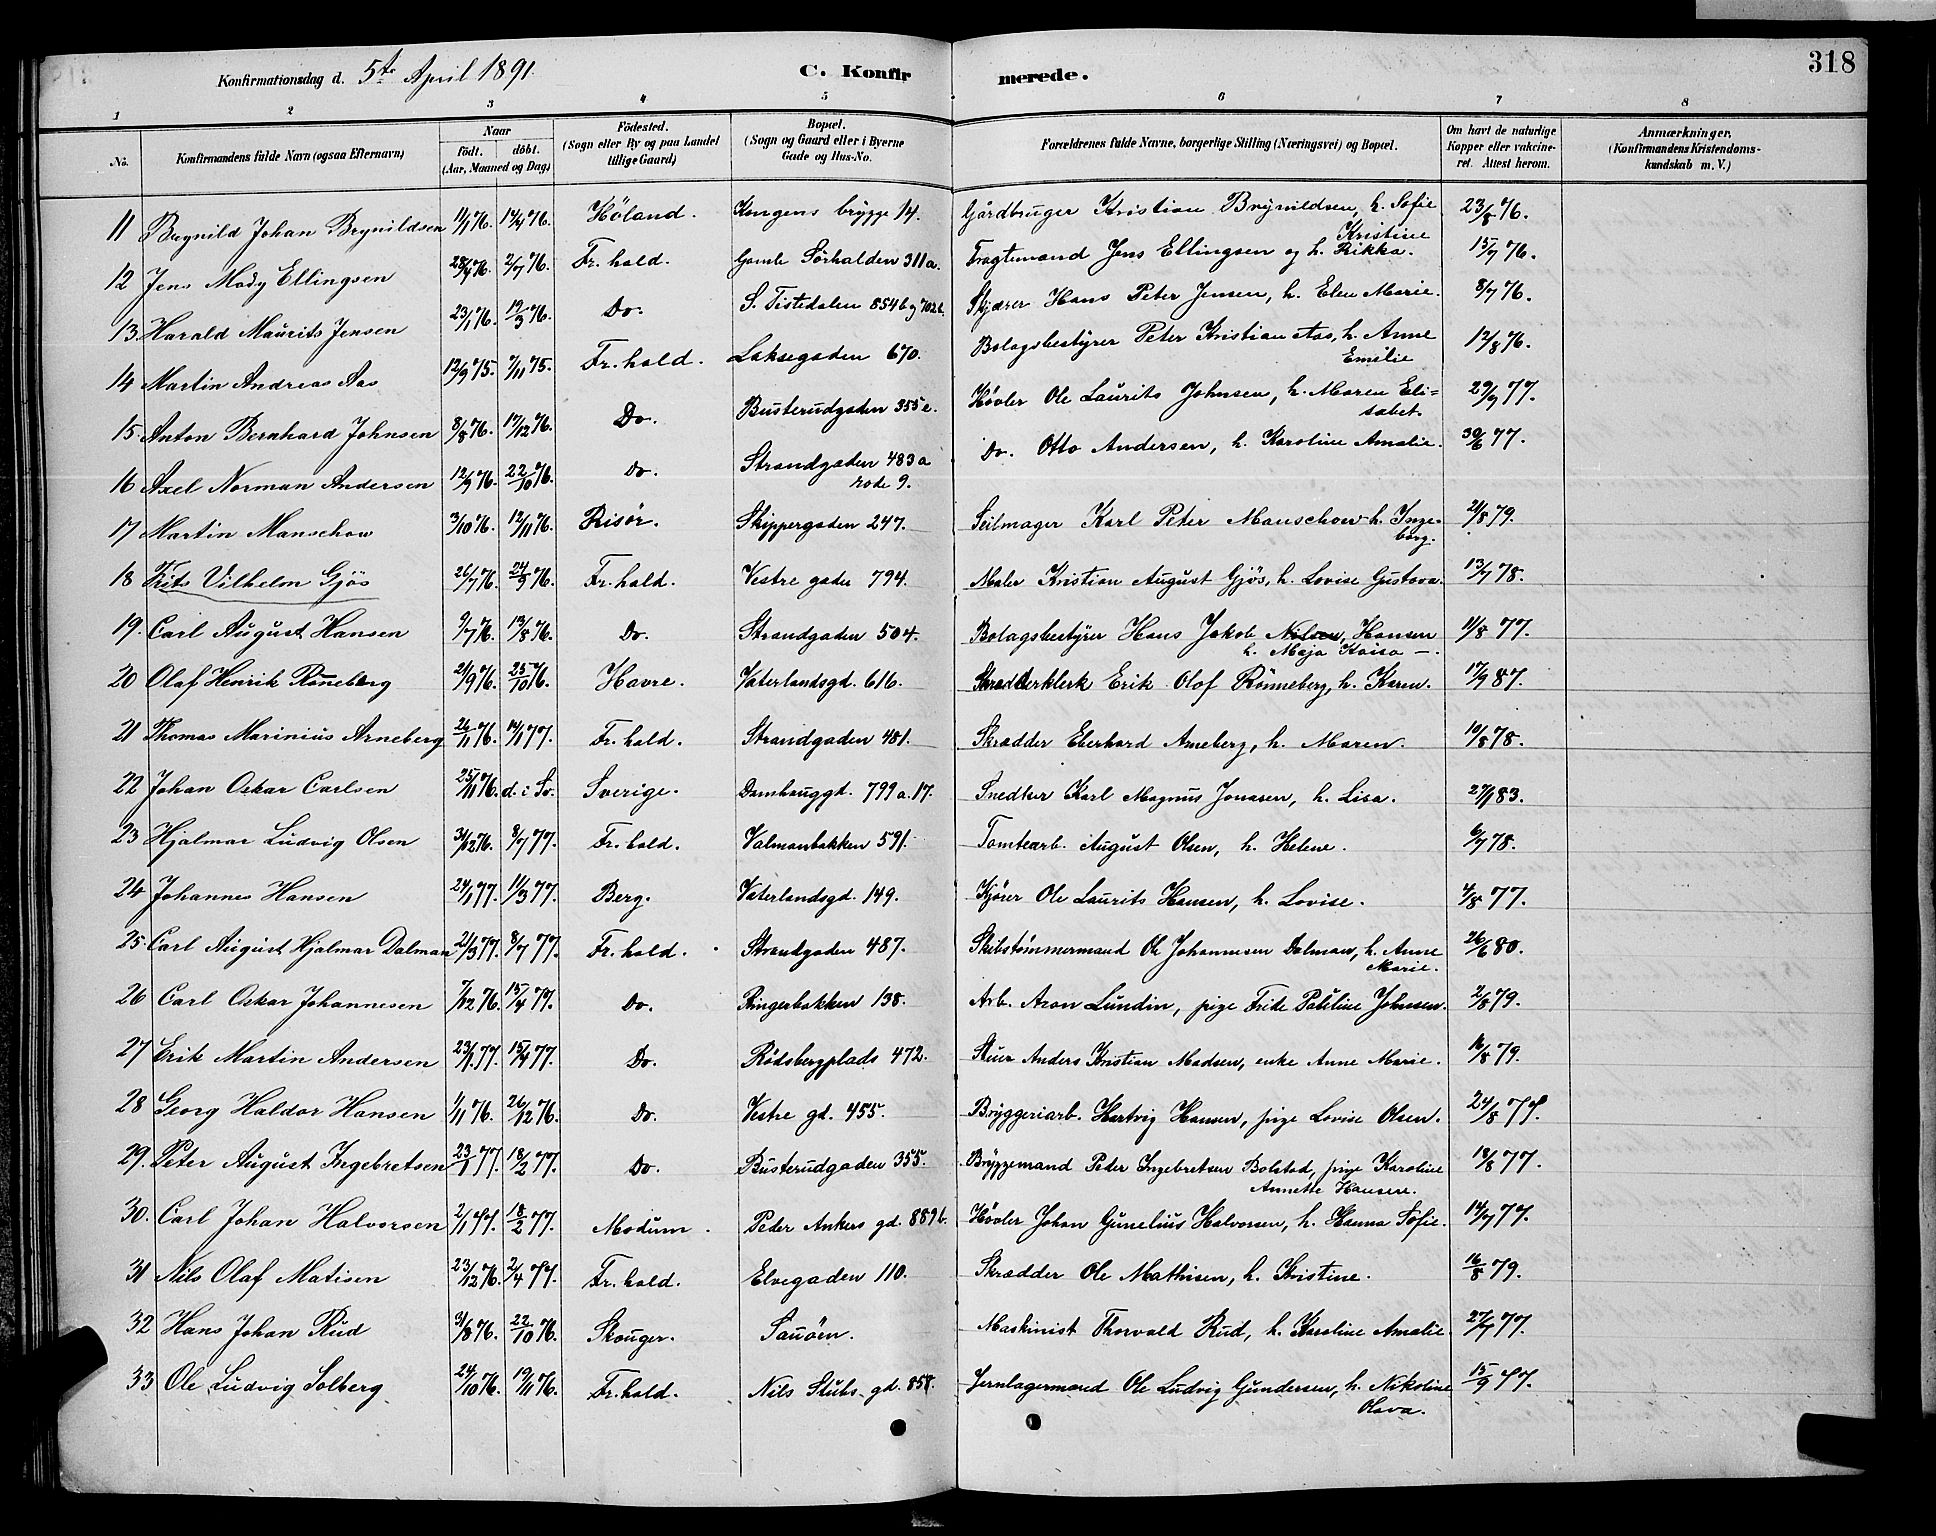 318
Konfirmationsdag d. 5te April 1891. C. Konfirmerede.
1 2 3 4 5 6 7 8
No. Konfirmandens fulde Navn (ogsaa Efternavn) Naar födt. döbt. (Aar, Maaned og Dag) Födested. (Sogn eller By og paa Landet tillige Gaard) Bopæl. (Sogn og Gaard eller i Byerne Gade og Hus-No. Forældrenes fulde Navne, borgerlige Stilling (Næringsvei) og Bopæl. Om havt de naturlige Kopper eller vakcineret. Attest herom. Anmærkninger. (Konfirmandens Kristendomskundskab m. V.)
11 Brynild Johan Brynildsen 11/1 76. 17/4 76. Høland. Kongens brygge 14. Gårdbruger Kristian Brynildsen, h. Sofie Kristine 23/8 76.
12 Jens Mody Ellingsen 28/4 76. 2/7 76. Fr.hald. Gamle Sørhalden 311a. Fragtemand Jens Ellingsen og h. Rikka. 15/7 76.
13. Harald Maurits Jensen 23/1 76. 12/3 76. Do. S. Tistdalen 854b og 702b. Skjærer Hans Peter Jensen, h. Elen Marie. 8/7 76.
14 Martin Andreas Aas 12/9 75. 7/11 75. Fr.hald. Laksegaden 670. Bolagsbestyrer Peter Kristian Aas, h. Anne Emilie 12/8 76.
15. Anton Bernhard Johnsen 8/8 76. 17/12 76. Do. Busterudgaden 355e. Høvler Ole Laurits Johnsen, h. Maren Elisabet. 29/9 77.
16 Axel Norman Andersen 12/9 76. 22/10 76. Do. Strandgaden 483a rode 9. Do. Otto Andersen, h. Karoline Amalie. 30/6 77.
17 Martin Manschow 3/10 76. 12/11 76. Risör. Skippergaden 247. Seilmager Karl Peter Manschow h. Ingeborg. 2/8 79.
18 Frits Vilhelm Gjös 26/7 76. 24/9 76. Fr.hald. Vestre gade 794. Maler Kristian August Gjös, h. Lovise Gustava. 13/7 78.
19. Carl August Hansen 9/7 76. 13/8 76. Do. Strandgaden 504. Bolagsbestyrer Hans Jakob Nilsen, Hansen h. Maja Kaisa —. 11/8 77.
20 Olaf Henrik Röneberg 21/9 76. 25/10 76. Havre. Vaterlandsgd. 616. Skrædderklerk Erik Olof Rönneberg, h. Karen. 17/9 87.
21 Thomas Marinius Arneberg 26/11 76. 14/1 77. Fr.hald. Strandgaden 481. Skrædder Eberhard Arneberg, h. Maren. 10/8 78.
22 Johan Oskar Carlsen 25/11 76. d. i Sv. Sverige. Damhauggd. 799a. 17. Snedker Karl Magnus Jonasen, h. Lisa. 27/1 83.
23 Hjalmar Ludvig Olsen 31/12 76. 8/7 77. Fr.hald. Valmanbakken 591. Tomtearb. August Olsen, h. Helene. 6/7 78.
24 Johannes Hansen 24/1 77. 11/3 77. Berg. Vaterlandsgd. 149. Kjörer Ole Laurits Hansen, h. Lovise. 4/8 77.
25. Carl August Hjalmar Dalman 21/3 77. 8/7 77. Fr.hald. Strandgaden 487. Skibstömmermand Ole Johannesen Dalman, h. Anne Marie. 26/6 80.
26 Carl Oskar Johannesen 7/12 76. 15/4 77. Do. Ringerbakken 138. Arb. Aron Lundin, pige Frike Pauline Johnsen. 2/8 79.
27 Erik Martin Andersen 23/1 77. 15/4 77. Do. Rödsbergplads 472. Stuer Anders Kristian Madsen, enke Anne Marie. 16/8 79.
28 Georg Haldor Hansen 1/11 76. 26/12 76. Do. Vestre gd. 455. Bryggeriarb. Hartvig Hansen, pige Lovise Olsen. 24/8 77.
29. Peter August Ingebretsen 23/1 77. 18/2 77. Do. Busterudgaden 355. Bryggemand Peter Ingebretsen Bolstad, pige Karoline Annette Hansen. 18/8 77.
30. Carl Johan Halvorsen 2/1 77. 18/2 77. Modum. Peder Ankers gd. 889b. Høvler Johan Gunelius Halvorsen, h. Hanna Sofie. 14/7 77.
31 Nils Olaf Matisen 23/12 76. 2/4 77. Fr.hald. Elvegaden 110. Skrædder Ole Mathisen, h. Kristine. 16/8 79.
32 Hans Johan Rud 31/8 76. 22/10 76. Skouger. Sauöen. Maskinist Thorvald Rud, h. Karoline Amalie. 27/7 77.
33 Ole Ludvig Solberg 24/10 76. 19/11 76. Fr.hald. Nils Stubs gd. 858. Jernlagermand Ole Ludvig Gundersen, h. Nikoline Olava. 15/9 77.